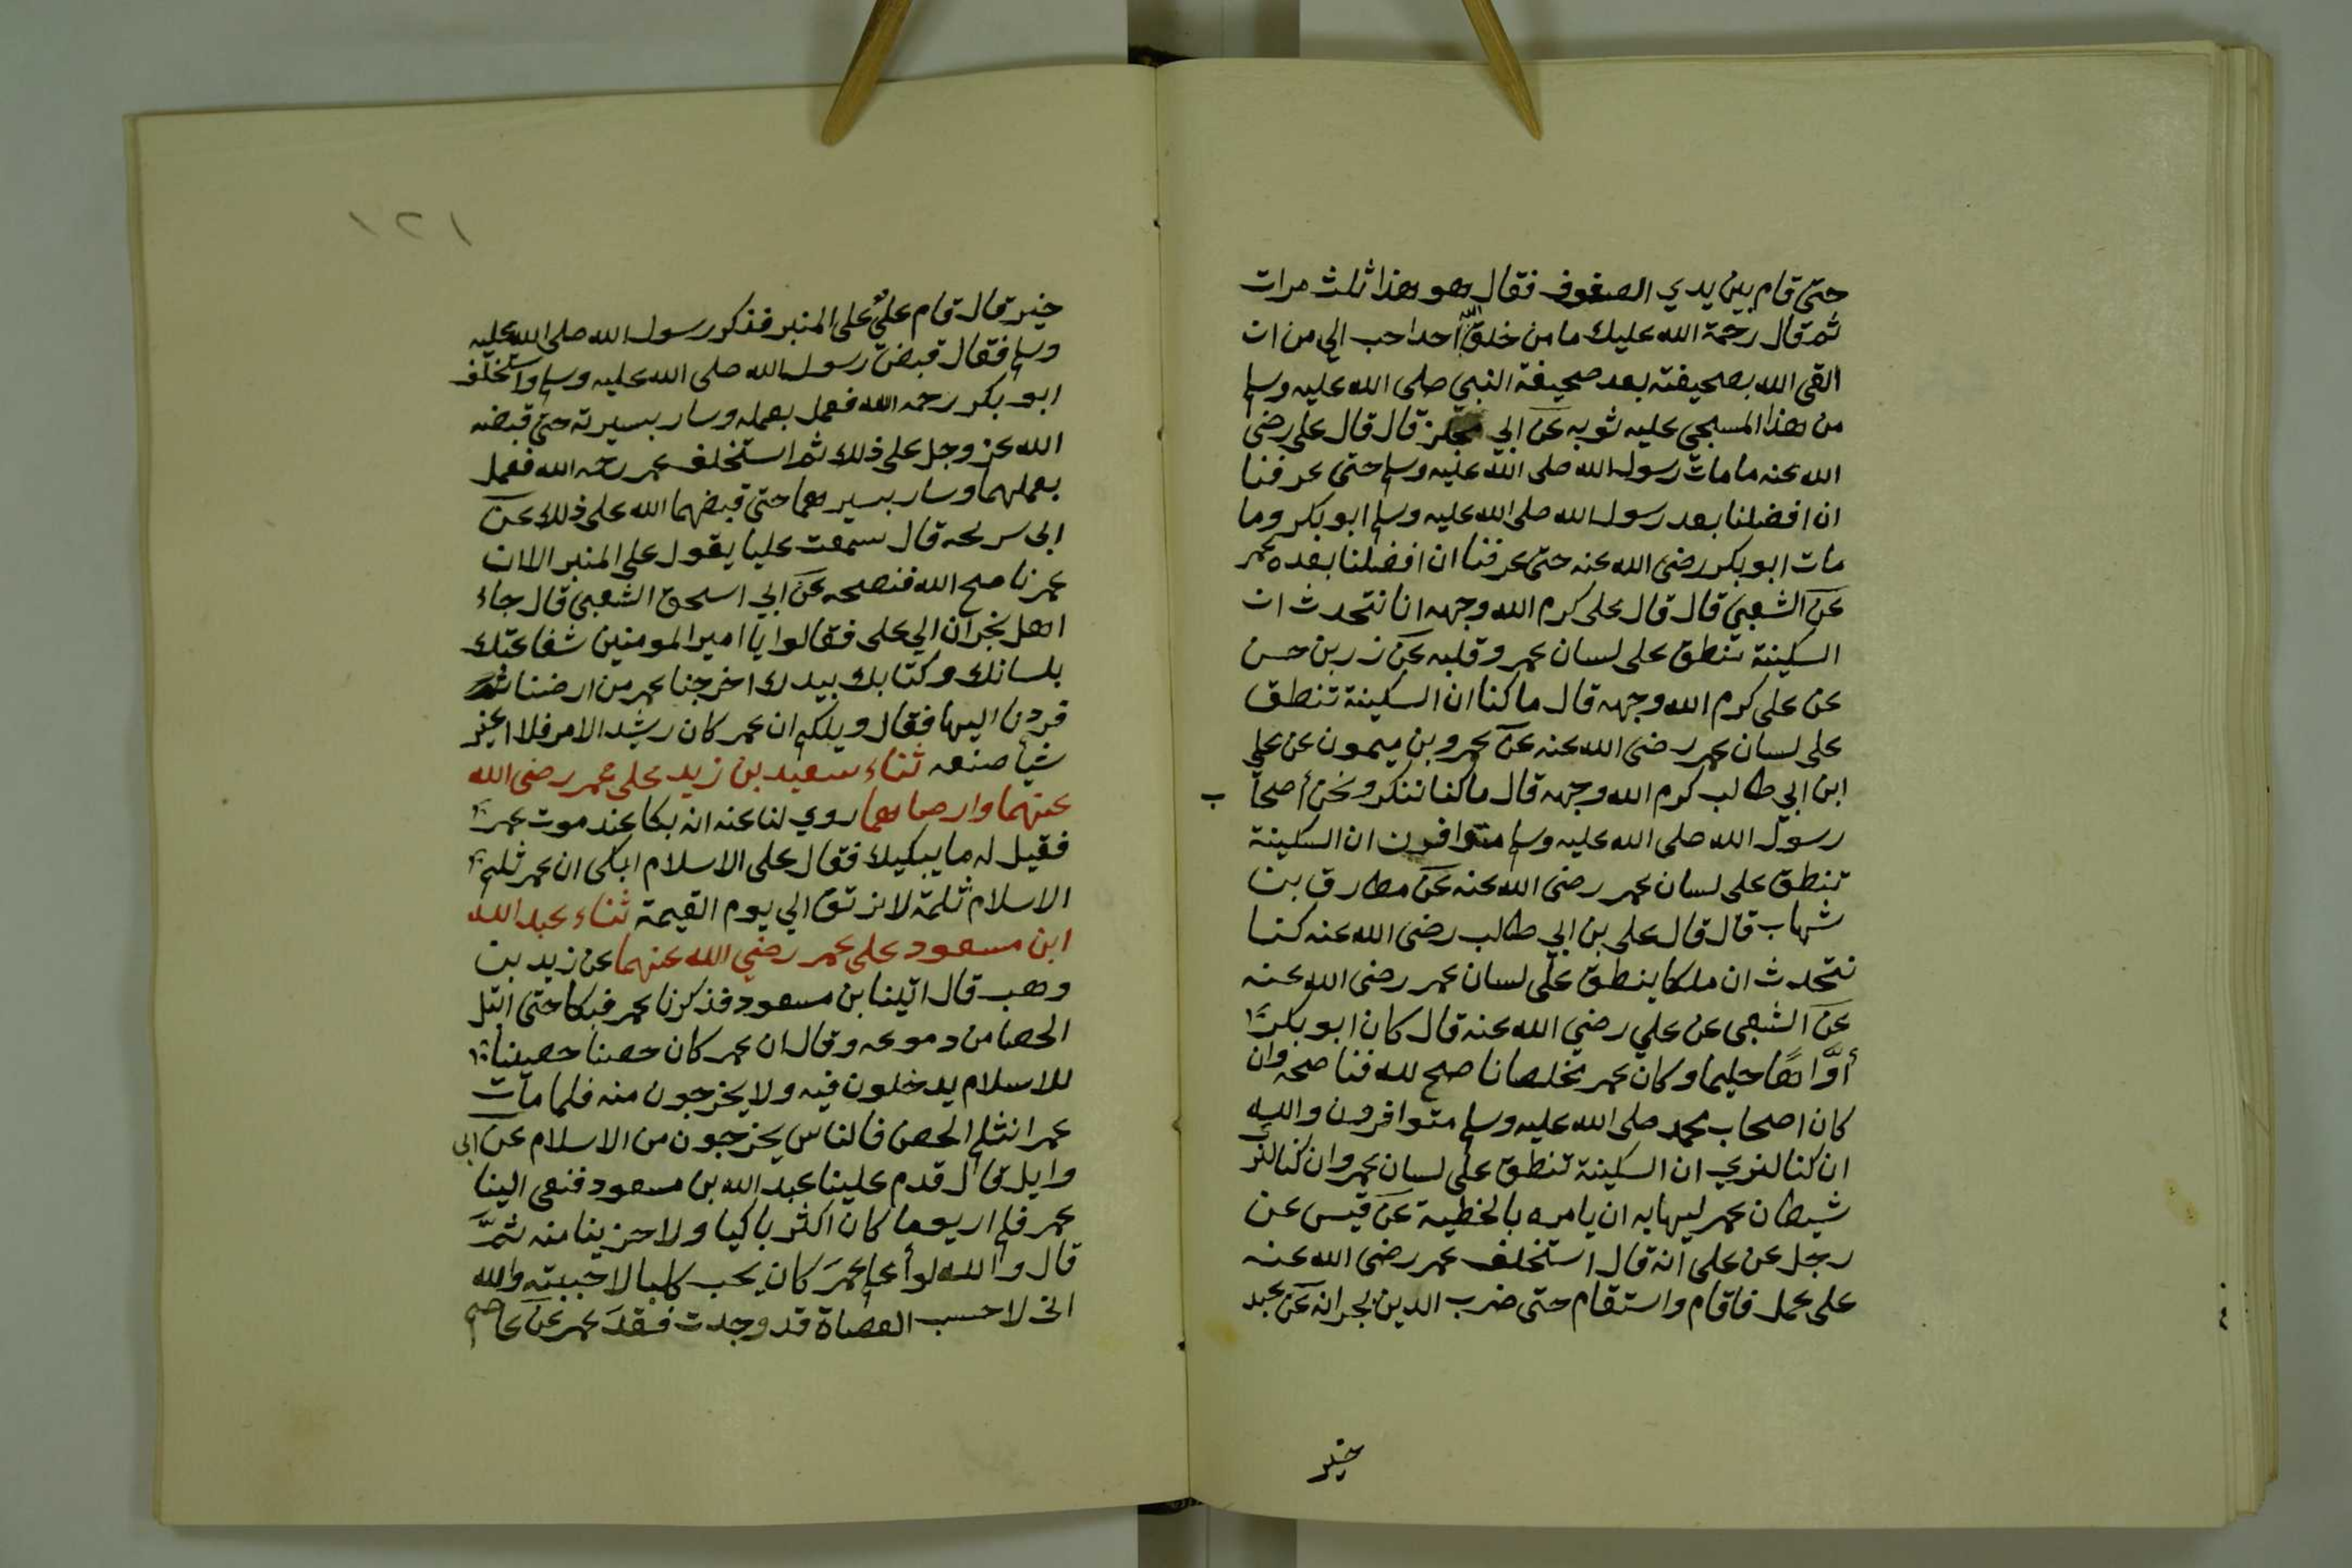 حتى قام بين يدي الصفوف فقال هو هذا ثلث مرات
ثم قال رحمة الله عليك ما من خلق الله احدا حب الي من ان
القى الله بصحيفته بعد صحيفة النبي صلى الله عليه وسلم
من هذا المسجى عليه ثوبه عن ابي مجلز قال قال علي رضي
الله عنه ما مات رسول الله صلى الله عليه وسلم حتى عرفنا
ان افضلنا بعد رسول الله صلى الله عليه وسلم ابو بكر وما
مات ابو بكر رضي الله عنه حتى عرفنا ان افضلنا بعده عمر
عن الشعبي قال قال علي كرم الله وجهه انا نتحدث ان
السكينة تنطق على لسان عمر وقلبه عن زر بن حسن
عن علي كرم الله وجهه قال ما كنا ان السكينة تنطق
على لسان عمر رضي الله عنه عن عمرو بن ميمون عن علي
ابن ابي طالب كرم الله وجهه قال ما كنا ننكر ونحن أصحا
ب
رسول الله صلى الله عليه وسلم متوافرون ان السكينة
تنطق على لسان عمر رضي الله عنه عن مطارق بن
شهاب قال قال علي بن ابي طالب رضي الله عنه كنا
نتحدث ان ملكا ينطق على لسان عمر رضي الله عنه
عن الشعبي عن علي رضي الله عنه قال كان ابو بكر
أوّاهًا حليما وكان عمر مخلصا ناصح لله فناصحه وان
كان اصحاب محمد صلى الله عليه وسلم متوافرون والله
ان كنا لنري ان السكينة تنطق على لسان عمر وان كنا لنر
شيطان عمر ليهابه ان يامره بالخطية عن قيس عن
رجل عن علي انه قال استخلف عمر رضي الله عنه
على عمل فاقام واستقام حتى ضرب الدين بجرانه عن عبد
خير
١٢١
خير قال قام علي على المنبر فذكر رسول الله صلى الله عليه
وسلم فقال قبض رسول الله صلى الله عليه وسلم واستخلف
ابو بكر رحمه الله فعمل بعمله وسار بسيرته حتى قبضه
الله عز وجل على ذلك ثم استخلف عمر رحمه الله فعمل
بعملهما وسار بسيرهما حتى قبضهما الله على ذلك عن
ابي سريحه قال سمعت عليا يقول على المنبر الا ان
عمر ناصح الله فنصحه عن ابي اسحق الشعبي قال جاء
اهل نجران الي علي فقالوا يا امير المومنين شفاعتك
بلسانك وكتابك بيدك اخرجنا عمر من ارضنا ثم
فردنا اليها فقال ويلكم ان عمر كان رشيد الامر فلا اغير
شيأ صنعه ثناء سعيد بن زيد على عمر رضي الله
عنهما وارضاهما روي لنا عنه انه بكا عند موت عمر
فقيل له ما يبكيك فقال على الاسلام ابكى ان عمر ثلم
الاسلام ثلمة لا ترتق الي يوم القيمة ثناء عبد الله
ابن مسعود على عمر رضي الله عنهما عن زيد بن
وهب قال اتينا بن مسعود فذكرنا عمر فبكا حتى ابتل
الحصا من دموعه وقال ان عمر كان حصنا حصينا
للاسلام يدخلون فيه ولا يخرجون منه فلما مات
عمر انثلم الحصن فالناس يخرجون من الاسلام عن ابي
وايل قال قدم علينا عبد الله بن مسعود فنعى الينا
عمر فلم ار يوما كان اكثر باكيا ولا حزينا منه ثمّ
قال والله لو أعلم عمرَ كان يحب كلبا لاحببته والله
اني لاحسب العضاة قد وجدت فقدَ عمر عن عاصم